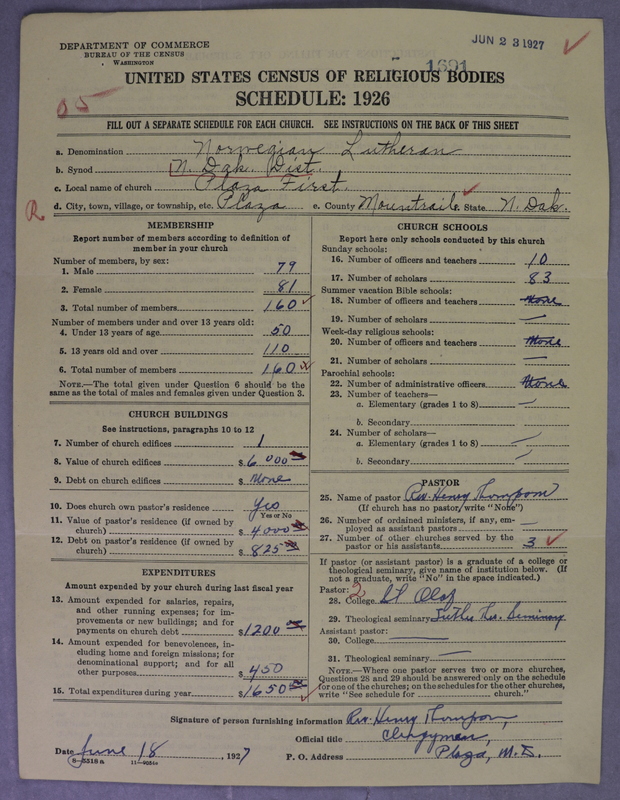 JUN 23 1927
1691
DEPARTMENT OF COMMERCE
BUREAU OF THE CENSUS
WASHINGTON
UNITED STATES CENSUS OF RELIGIOUS BODIES
SCHEDULE: 1926
05
FILL OUT A SEPARATE SCHEDULE FOR EACH CHURCH. SEE INSTRUCTIONS ON THE BACK OF THIS SHEET
a. Denomination Norwegian Lutheran
b. Synod N. Dak. Dist.
c. Local name of church Plaza First.
R
d. City, town, village, or township, etc. Plaza e. County Mountrail f. State N. Dak.
MEMBERSHIP
Report number of members according to definition of
member in your church
Number of members, by sex:
1. Male 79
2. Female 81
3. Total number of members 160
Number of members under and over 13 years old:
4. Under 13 years of age 50
5. 13 years old and over 110
6. Total number of members 160
NOTE.—The total given under Question 6 should be the
same as the total of males and females given under Question 3.
CHURCH BUILDINGS
See instructions, paragraphs 10 to 12
7. Number of church edifices 1
8. Value of church edifices $6000
9. Debt on church edifices $None
10. Does church own pastor's residence? Yes
Yes or No
11. Value of pastor's residence (if owned by
church) $4000
12. Debt on pastor's residence (if owned by
church) $825
EXPENDITURES
Amount expended by your church during last fiscal year
13. Amount expended for salaries, repairs,
and other running expenses; for im-
provements or new buildings; and for
payments on church debt $1200
14. Amount expended for benevolences, in-
cluding home and foreign missions; for
denominational support; and for all
other purposes $450
15. Total expenditures during year $1650
CHURCH SCHOOLS
Report here only schools conducted by this church
Sunday schools:
16. Number of officers and teachers 10
17. Number of scholars 83
Summer vacation Bible schools:
18. Number of officers and teachers None
19. Number of scholars —
Week-day religious schools:
20. Number of officers and teachers None
21. Number of scholars —
Parochial schools:
22. Number of administrative officers None
23. Number of teachers—
a. Elementary (grades 1 to 8) —
b. Secondary
24. Number of scholars—
a. Elementary (grades 1 to 8) —
b. Secondary —
PASTOR
25. Name of pastor Rev. Henry Thompson
(If church has no pastor, write "None")
26. Number of ordained ministers, if any, em-
ployed as assistant pastors —
27. Number of other churches served by the
pastor or his assistants 3
If pastor (or assistant pastor) is a graduate of a college or
theological seminary, give name of institution below. (If
not a graduate, write "No" in the space indicated.)
Pastor: 2
28. College St. Olaf
29. Theological seminary Luther Theo. Seminary
Assistant pastor:
30. College —
31. Theological seminary —
NOTE.—Where one pastor serves two or more churches,
Questions 28 and 29 should be answered only on the schedule
for one of the churches; on the schedules for the other churches,
write "See schedule for ________ church."
Signature of person furnishing information Rev. Henry Thompson,
Official title Clergyman,
Date June 18, 1927 P. O. Address Plaza, N. D.
8—5518 a